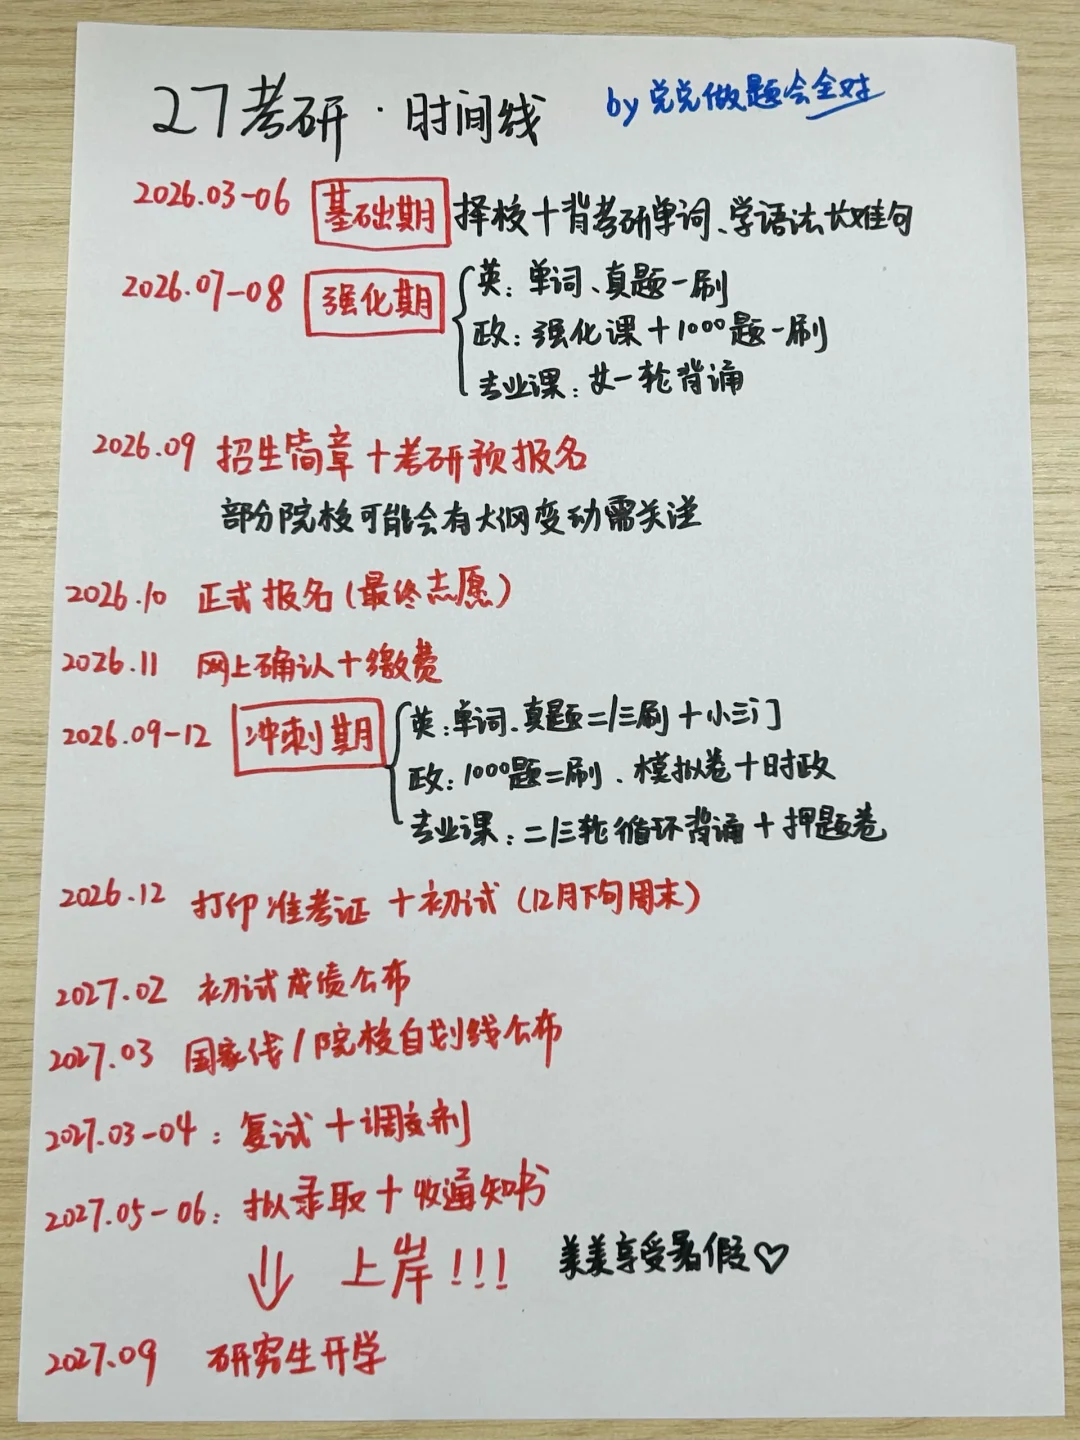 27考研·时间线 by 兑兑做题会全对
2026.03-06 基础期 择校+背考研单词、学语法长难句
2026.07-08 强化期
英: 单词、真题一刷
政: 强化课+1000题一刷
专业课: 女一轮背诵
2026.09 招生简章+考研预报名
部分院校可能会有大纲变动需关注
2026.10 正式报名(最终志愿)
2026.11 网上确认+缴费
2026.09-12 冲刺期
英: 单词.真题二/三刷+小三门
政: 1000题二刷、模拟卷+时政
专业课: 二/三轮循环背诵+押题卷
2026.12 打印准考证+初试(12月下旬周末)
2027.02 初试成绩公布
2027.03 国家线/院校自划线公布
2027.03-04: 复试+调剂
2027.05-06: 拟录取+收通知书
上岸!!! 美美享受暑假
2027.09 研究生开学